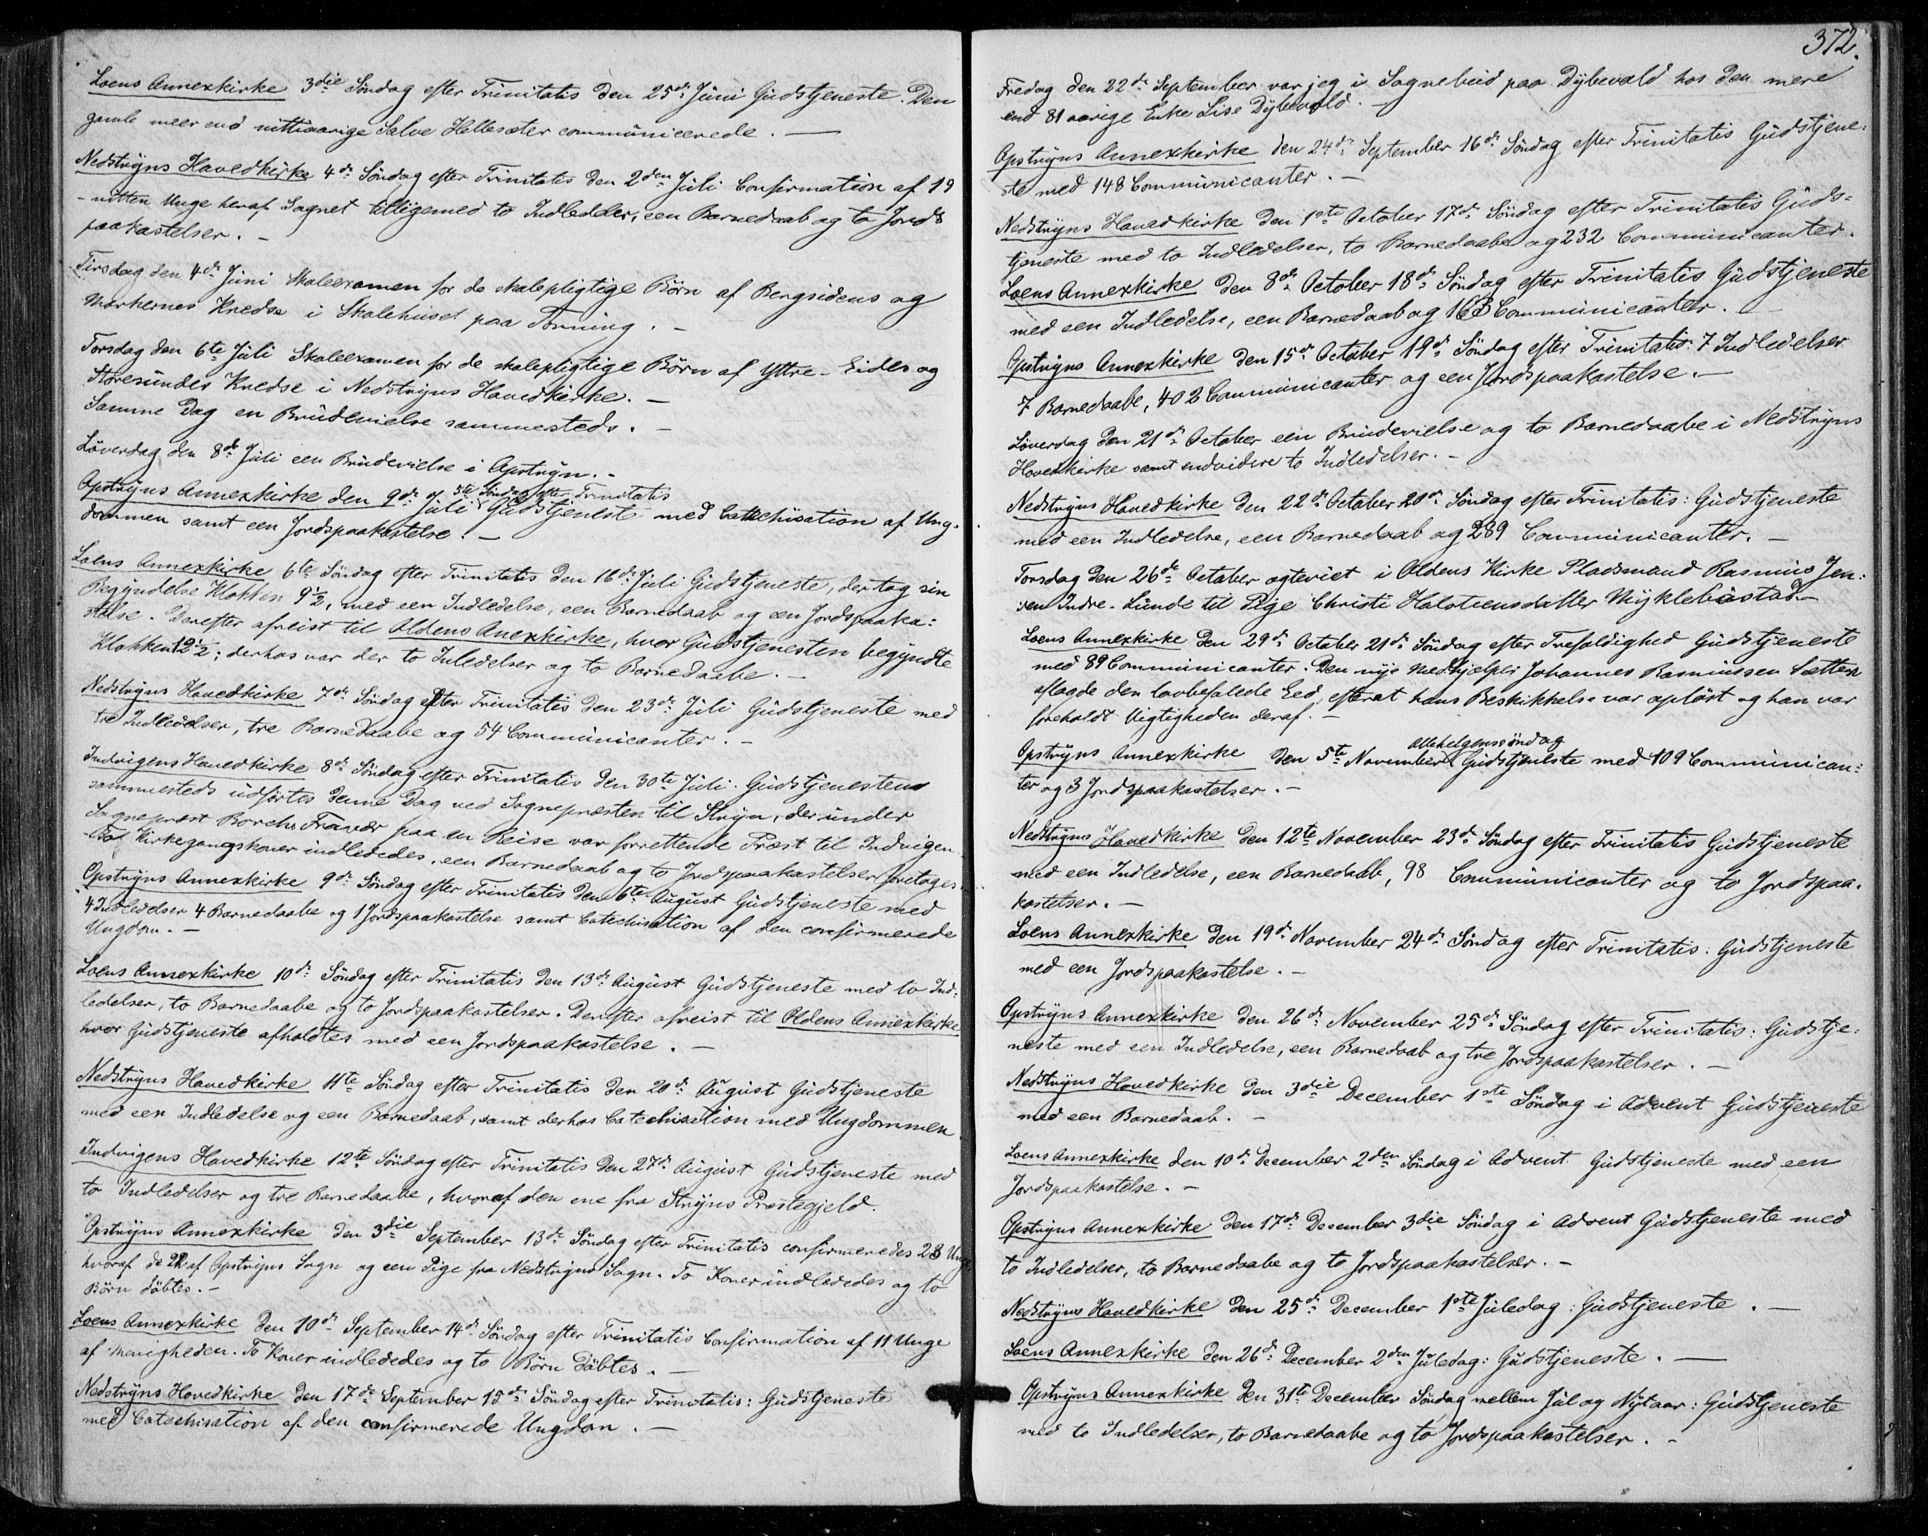 Loens Annexkirke 3die Søndag efter Trinitatis den 25de Juni Gudstjeneste. Den
gamle meer end nittiaarige Salve Hellesæter communicerede. —
Nedstryns Hovedkirke 4de Søndag efter Trinitatis den 2den Juli Confirmation af 19
- nitten Unge heraf Sognet tilligemed to Indledelser, een Barnedaab og to Jords
paakastelser. -
Tirsdag den 4de Juni Skoleexamen for de skolepligtige Børn af Bergsidens og
Markernes Kredse i Skolehuset paa Tonning. -
Torsdag den 6te Juli Skoleexamen for de skolepligtige Børn af Yttre-Eides og
Storesundes Kredse i Nedstryns Hovedkirke. -
Samme Dag en Brudevielse sammesteds. -
Løverdag den 8de Juli een Brudevielse i Opstryn. -
5te Søndag efter Trinitatis
Opstryns Annexkirke den 9de Juli Gudstjeneste med Catechisation af Ung-
dommen samt een Jordspaakastelse. -
Loens Annexkirke 6te Søndag efter Trinitatis den 16de Juli Gudstjeneste, der tog sin
Begyndelse Klokken 9½, med een Indledelse, een Barnedaab og een Jordspaaka:
stelse. Derefter afreist til Oldens Anexkirke, hvor Gudstjenesten begyndte
Klokken 12½; derhos var der to Inledelser og to Barnedaabe. -
Nedstryns Hovedkirke 7de Søndag efter Trinitatis den 23de Juli Gudstjeneste med
tre Indledelser, tre Barnedaabe og 54 Communicanter. -
Indvigens Hovedkirke 8de Søndag efter Trinitatis den 30te Juli. Gudstjenesten
sammesteds udførtes denne Dag ved Sognepræsten til Stryn, der under
Sognepræst Borchs Fravær paa en Reise var forrettende Præst til Indvigen.
Kirkegangskoner indlededes, een Barnedaab og to Jordspaakastelser foretoges.
Opstryns Annexkirke 9de Søndag efter Trinitatis den 6te August Gudstjeneste med
4 Indledelser 4 Barnedaabe og 1 Jordspaakastelse samt Catechisation af den confirmerede
Ungdom. -
Loens Annexkirke 10de Søndag efter Trinitatis den 13de August Gudstjeneste med to Ind-
ledelser, to Barnedaabe og to Jordspaakastelser. Derefter afreist til Oldens Annexkirke
hvor Gudstjeneste afholdtes med een Jordspaakastelse. -
Nedstryns Hovedkirke 11te Søndag efter Trinitatis den 20de August Gudstjeneste
med een Indledelse og een Barnedaab, samt derhos Catechisation med Ungdommen
Indvigens Hovedkirke 12te Søndag efter Trinitatis den 27de August Gudstjeneste med
to Indledelser og tre Barnedaabe, hvoraf den ene fra Stryns Præstegjeld.
Opstryns Annexkirke den 3die September 13de Søndag efter Trinitatis confirmeredes 23 Unge
hvoraf de 22 af Opstryns Sogn og een Pige fra Nedstryns Sogn. To Koner indlededes og to
Børn døbtes. -
Loens Annexkirke den 10de September 14de Søndag efter Trinitatis Confirmation af 11 Unge
af Menigheden. To Koner indlededes og to Børn døbtes. -
Nedstryns Hovedkirke den 17de September 15de Søndag efter Trinitatis: Gudstjeneste
med Catechisation af den confirmerede Ungdom. -
372.
Fredag den 22de September var jeg i Sognebud paa Dybevold hos den mere
end 81 aarige Enke Lise Dybevold. -
Opstryns Annexkirke den 24de September 16de Søndag efter Trinitatis Gudstjene:
ste med 148 Communicanter. -
Nedstryns Hovedkirke den 1ste October 17de Søndag efter Trinitatis Guds-
tjeneste med to Indledelser, to Barnedaabe og 232 Communicanter.
Loens Annexkirke den 8de October 18de Søndag efter Trinitatis Gudstjeneste
med een Indledelse, een Barnedaab og 163 Communicanter. -
Opstryns Annexkirke den 15de October 19de Søndag efter Trinitatis: 7 Indledelser
7 Barnedaabe, 402 Communicanter og een Jordspaakastelse. -
Løverdag den 21de October een Brudevielse og to Barnedaabe i Nedstryns
Hovedkirke samt endvidere to Indledelser. -
Nedstryns Hovedkirke den 22de October 20de Søndag efter Trinitatis: Gudstjeneste
med een Indledelse, een Barnedaab og 289 Communicanter. -
Torsdag den 26de October egteviet i Oldens Kirke Pladsmand Rasmus Jen:
sen Indre-Sunde til Pige Christi Halsteensdatter Myklebustad. -
Loens Annexkirke den 29de October 21de Søndag efter Trefoldighed Gudstjeneste
med 89 Communicanter. Den nye Medhjelper Johannes Rasmussen Sætten
aflagde den lovbefalede Eed, efterat hans Beskikkelse var oplæst og han var
foreholdt Vigtigheden deraf. -
Allehelgenssøndag
Opstryns Annexkirke den 5te November Gudstjeneste med 109 Communican:
ter og 3 Jordspaakastelser. -
Nedstryns Hovedkirke den 12te November 23de Søndag efter Trinitatis Gudstjeneste
med een Indledelse, een Barnedaab, 98 Communicanter og to Jordspaa-
kastelser. -
Loens Annexkirke den 19de November 24de Søndag efter Trinitatis: Gudstjeneste
med een Jordspaakastelse. -
Opstryns Annexkirke den 26de November 25de Søndag efter Trinitatis: Gudstje:
neste med een Indledelse, een Barnedaab og tre Jordspaakastelser. -
Nedstryns Hovedkirke den 3die December 1ste Søndag i Advent Gudstjeneste
med een Barnedaab. -
Loens Annexkirke den 10de December 2den Søndag i Advent Gudstjeneste med een
Jordspaakastelse. -
Opstryns Annexkirke den 17de December 3die Søndag i Advent Gudstjeneste med
to Indledelser, to Barnedaabe og to Jordspaakastelser. -
Nedstryns Hovedkirke den 25de December 1ste Juledag: Gudstjeneste. -
Loens Annexkirke den 26de December 2den Juledag: Gudstjeneste. -
Opstryns Annexkirke den 31te December Søndag mellem Jul og Nytaar: Gudstjeneste
med to Indledelser, to Barnedaabe og to Jordspaakastelser. -